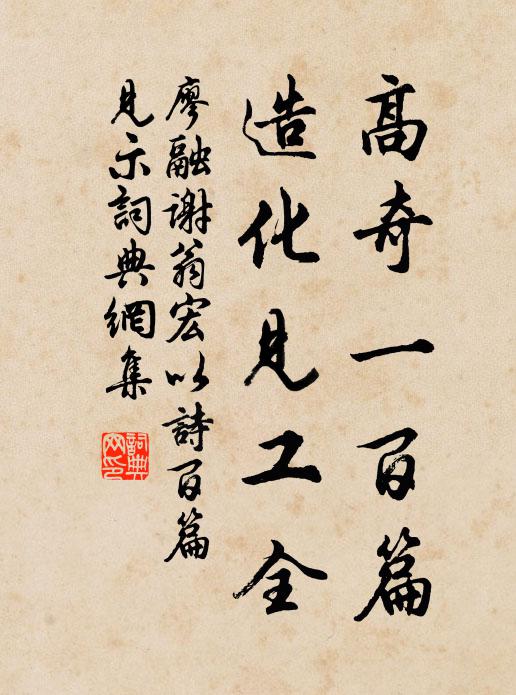 高奇一百篇
造化見工全
廖融謝翁宏以詩百篇
見示詞典網集
詞典网印